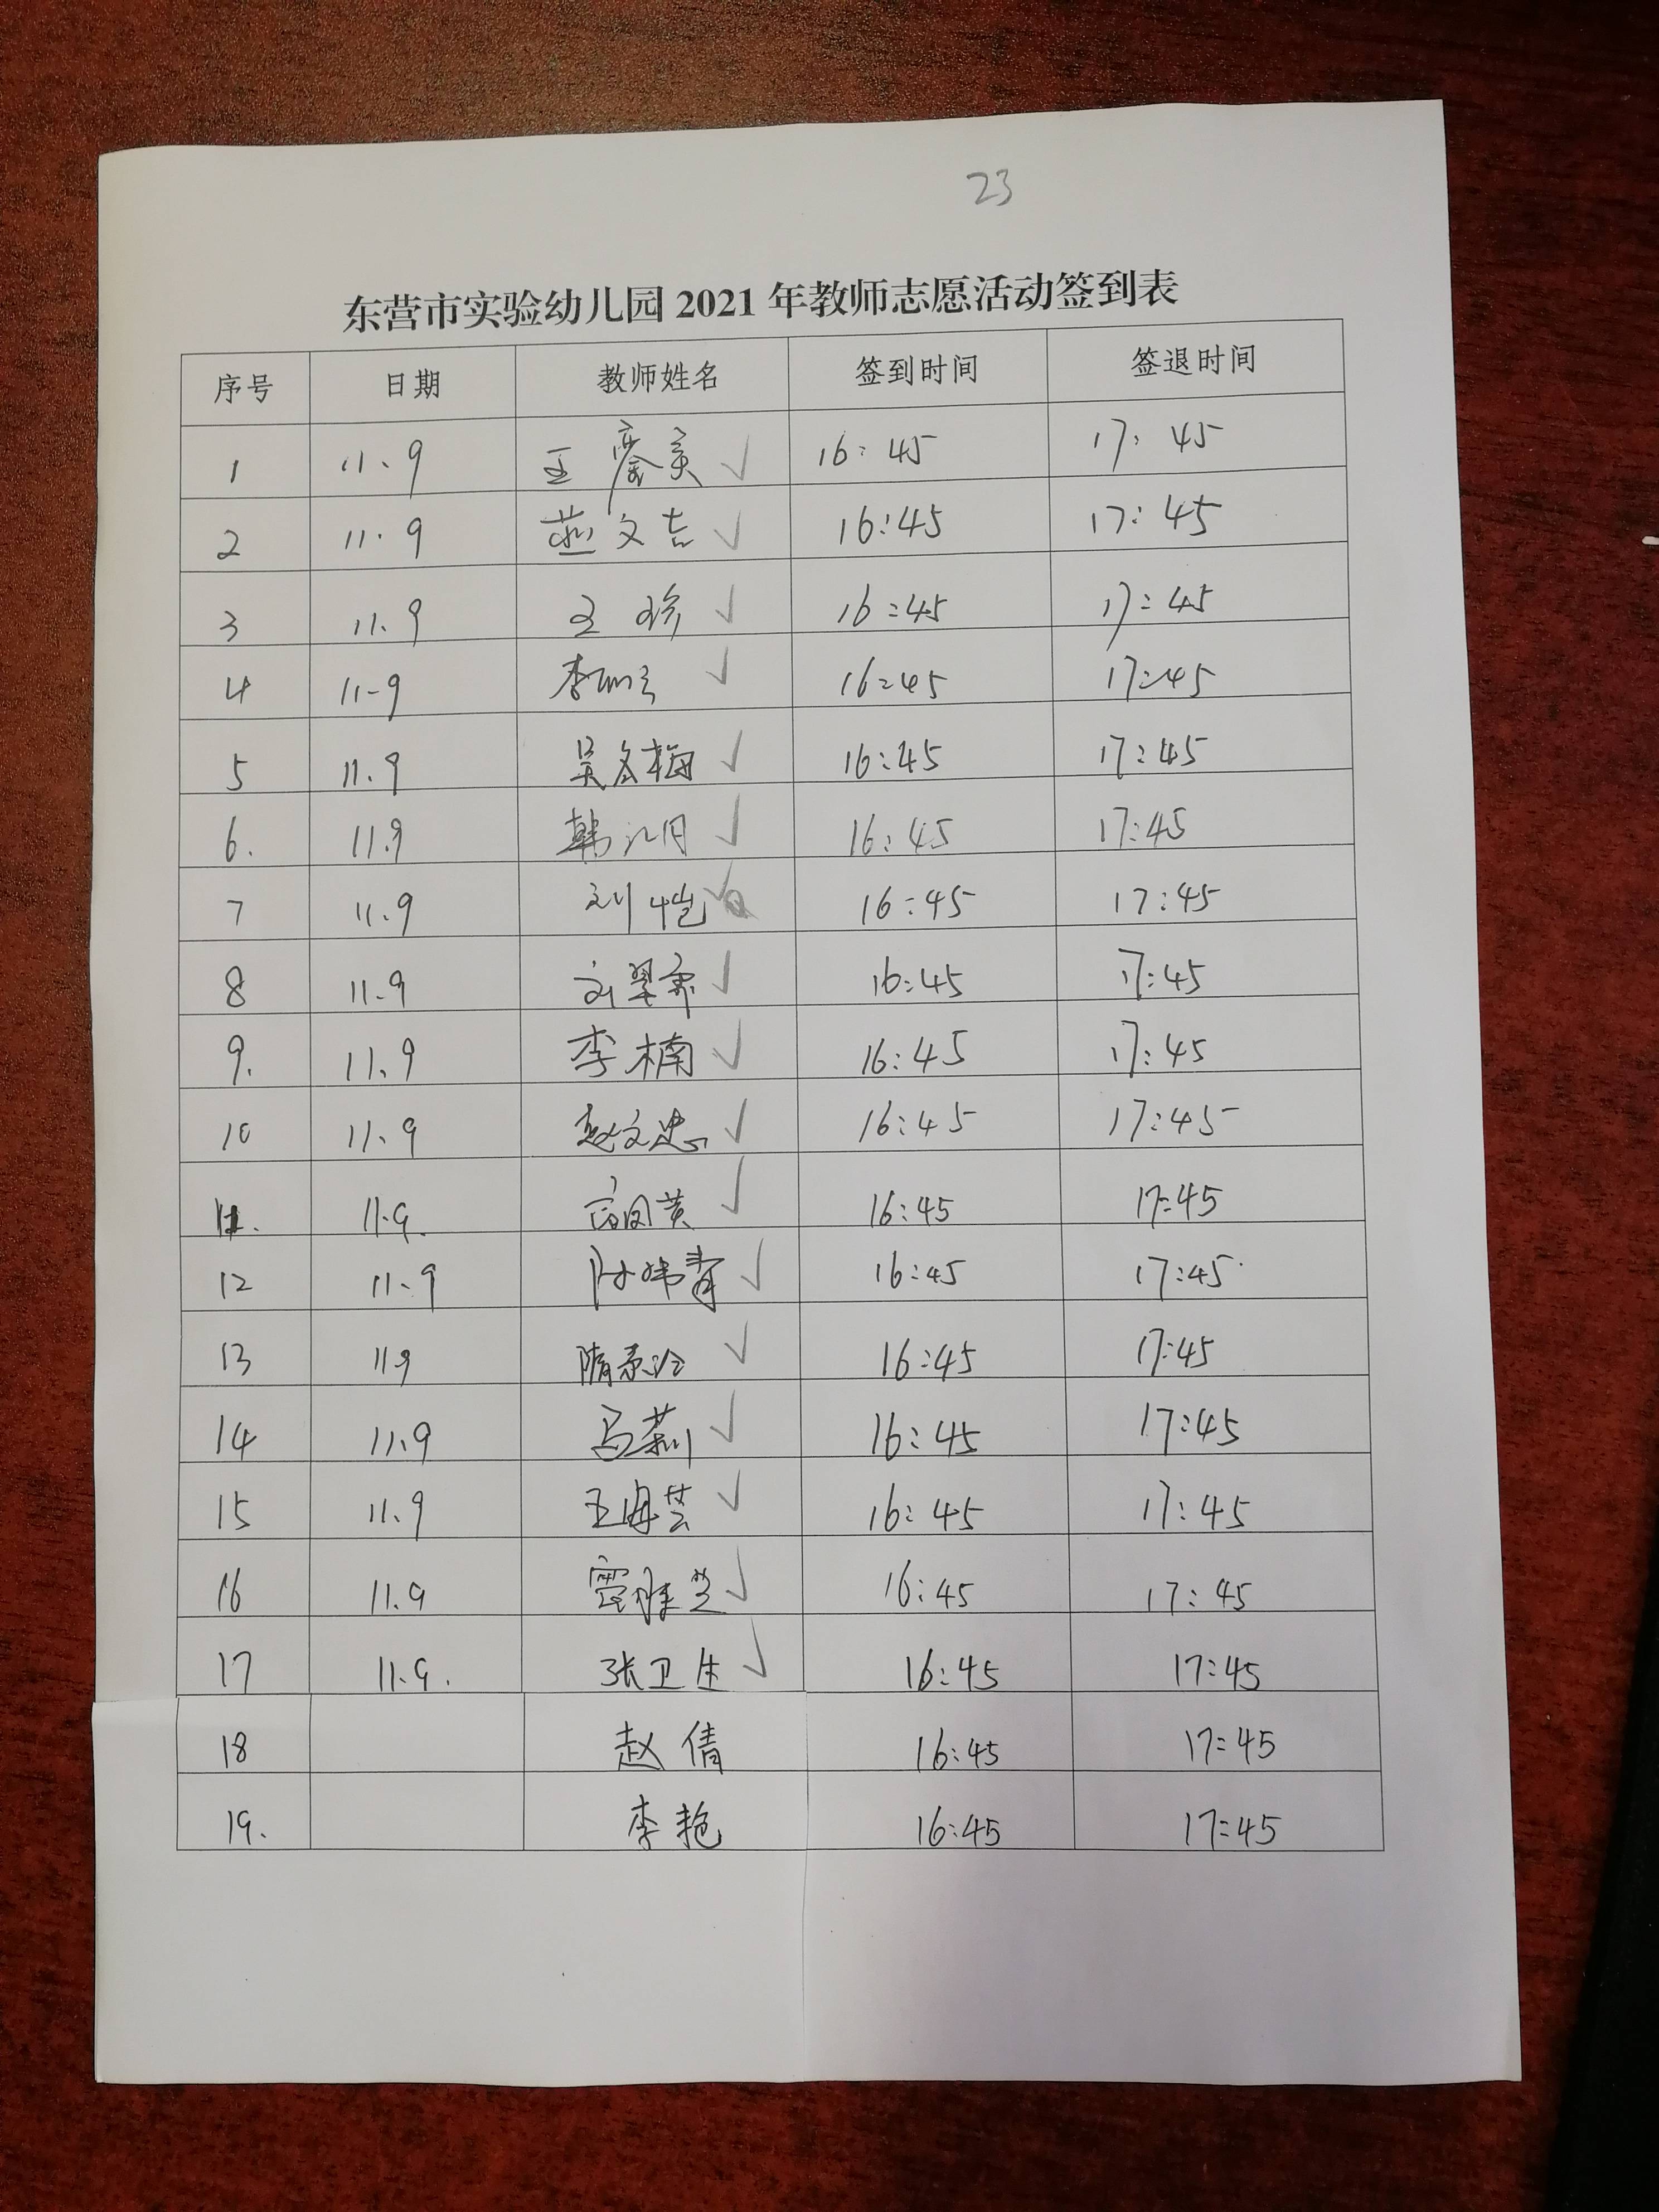 23
东营市实验幼儿园 2021 年教师志愿活动签到表
序号 日期 教师姓名 签到时间 签退时间
1 11、9 王 ✓ 16:45 17:45
2 11.9 燕文吉 ✓ 16:45 17:45
3 11、9 王珍 ✓ 16:45 17:45
4 11-9 李 ✓ 16:45 17:45
5 11.9 吴冬梅 ✓ 16:45 17:45
6. 11.9 韩 ✓ 16:45 17:45
7 11.9 刘恺 ✓ 16:45 17:45
8 11.9 刘翠 ✓ 16:45 17:45
9. 11、9 李楠 ✓ 16:45 17:45
10 11、9 赵文忠 ✓ 16:45 17:45
11. 11.9. ✓ 16:45 17:45
12 11.9 ✓ 16:45 17:45
13 11.9 隋 ✓ 16:45 17:45
14 11.9 马莉 ✓ 16:45 17:45
15 11.9 王海芸 ✓ 16:45 17:45
16 11.9 ✓ 16:45 17:45
17 11.9. 张卫 ✓ 16:45 17:45
18 赵倩 16:45 17:45
19. 李艳 16:45 17:45